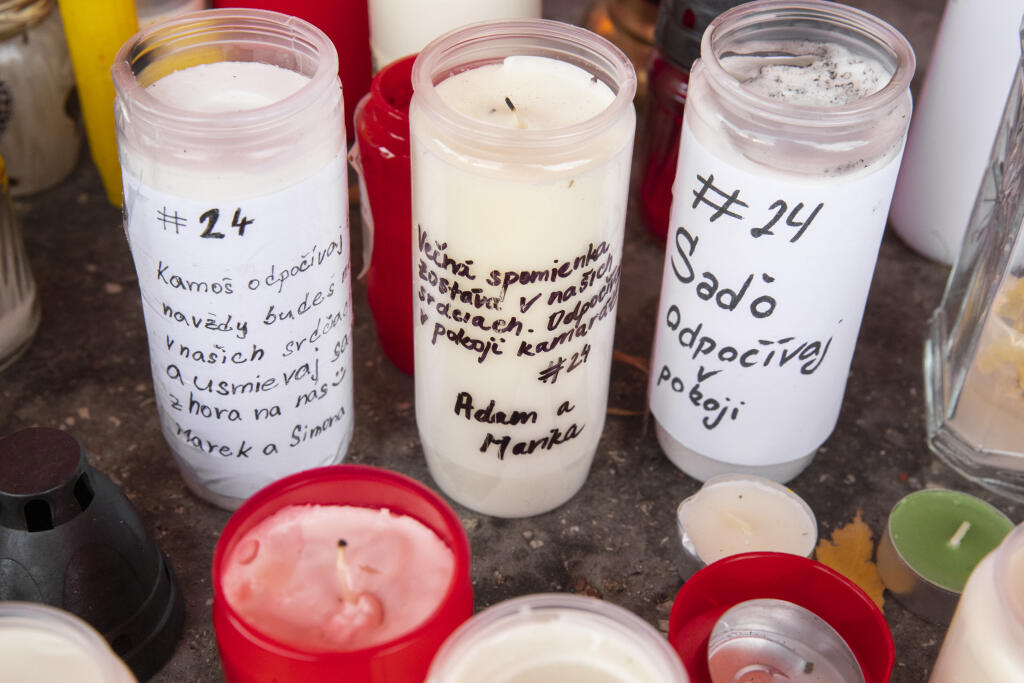 #24
Kamoš odpočívaj
navždy budeš
v našich srdciac
a usmievaj sa
zhora na nás
Marek a Simona
Večná spomienka
zostáva v našich
srdciach. Odpočívaj
v pokoji kamarát
#24
Adam a
Marika
#24
Sado
odpočívaj
v pokoji